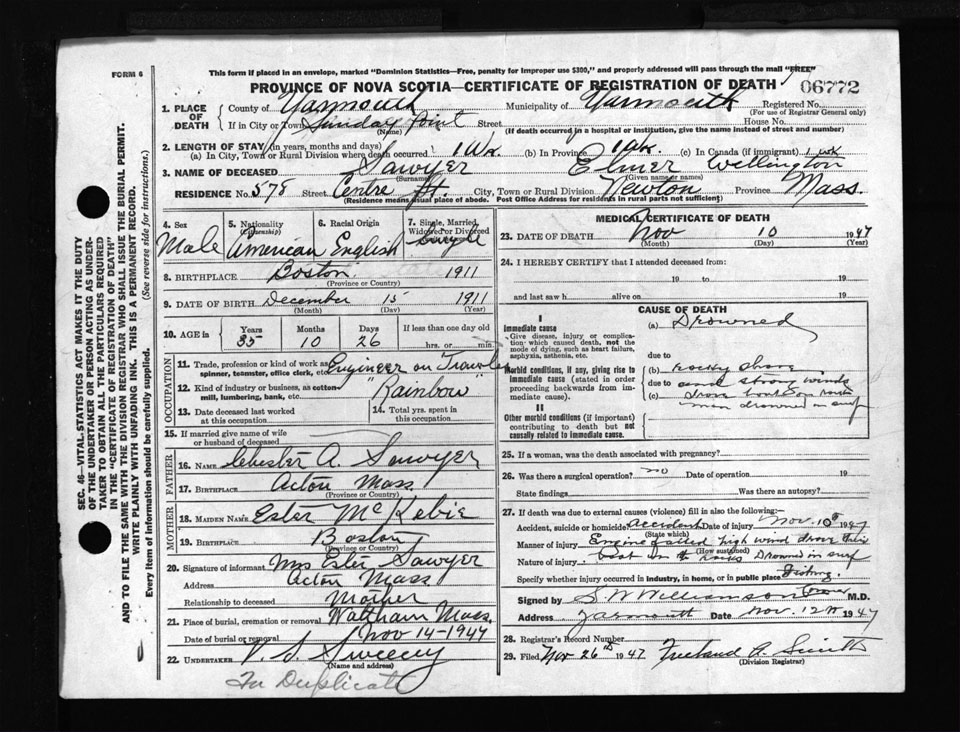 FORM 6
This form if placed in an envelope, marked "Dominion Statistics—Free, penalty for improper use $300," and properly addressed will pass through the mail "FREE"
PROVINCE OF NOVA SCOTIA—CERTIFICATE OF REGISTRATION OF DEATH
06772
1. PLACE OF DEATH County of Yarmouth Municipality of Yarmouth Registered No.
(For use of Registrar General only)
If in City or Town Sunday Point Street House No.
(Name) (If death occurred in a hospital or institution, give the name instead of street and number)
2. LENGTH OF STAY (in years, months and days)
(a) In City, Town or Rural Division where death occurred 1 Wk. (b) In Province 1 Wk. (c) In Canada (if immigrant) 1 wk
3. NAME OF DECEASED Sawyer Elmer Wellington
(Surname) (Given name or names)
RESIDENCE No. 578 Street Centre St. City, Town or Rural Division Newton Province Mass.
(Residence means usual place of abode. Post Office Address for residents in rural parts not sufficient)
4. Sex Male
5. Nationality (Citizenship) American
6. Racial Origin English
7. Single, Married, Widowed or Divorced Single
8. BIRTHPLACE Boston 1911
(Province or Country)
9. DATE OF BIRTH December 15 1911
(Month) (Day) (Year)
10. AGE in Years Months Days If less than one day old
35 10 26 hrs. or min.
OCCUPATION
11. Trade, profession or kind of work as spinner, teamster, office clerk, etc. Engineer on Trawler
12. Kind of industry or business, as cotton mill, lumbering, bank, etc. "Rainbow"
13. Date deceased last worked at this occupation
14. Total yrs. spent in this occupation
15. If married give name of wife or husband of deceased
FATHER
16. NAME Chester A. Sawyer
17. BIRTHPLACE Acton Mass
(Province or Country)
MOTHER
18. MAIDEN NAME Ester McKebie
19. BIRTHPLACE Boston
(Province or Country)
20. Signature of informant Mrs Ester Sawyer
Address Acton Mass
Relationship to deceased Mother
21. Place of burial, cremation or removal Waltham Mass.
Date of burial or removal Nov 14-1947
22. UNDERTAKER V. S. Sweeny
(Name and address)
In Duplicate
MEDICAL CERTIFICATE OF DEATH
23. DATE OF DEATH Nov 10 1947
(Month) (Day) (Year)
24. I HEREBY CERTIFY that I attended deceased from
19 to 19
and last saw h alive on 19
CAUSE OF DEATH
I
Immediate cause
Give disease, injury or complication; which caused death, not the mode of dying, such as heart failure, asphyxia, asthenia, etc.
(a) Drowned
due to
Morbid conditions, if any, giving rise to immediate cause (stated in order proceeding backwards from immediate).
(b) rocky shore
due to and strong winds
(c) drove boat on rocks
men drowned in surf
II
Other morbid conditions (if important) contributing to death but not causally related to immediate cause.
25. If a woman, was the death associated with pregnancy?
26. Was there a surgical operation? no Date of operation 19
State findings Was there an autopsy?
27. If death was due to external causes (violence) fill in also the following:—
Accident, suicide or homicide? accident Date of injury Nov. 10th 1947
(State which)
Manner of injury Engine failed high wind drove this
(How sustained)
Nature of injury: boat on the rocks Drowned in surf
Specify whether injury occurred in industry, in home, or in public place Fishing.
Signed by S. W. Williamson M.D.
Address Yarmouth Date Nov. 12th 1947
28. Registrar's Record Number
29. Filed Nov 26th 1947 Freeland A. Smith
(Division Registrar)
SEC. 46—VITAL STATISTICS ACT MAKES IT THE DUTY
OF THE UNDERTAKER OR PERSON ACTING AS UNDER-
TAKER TO OBTAIN ALL THE PARTICULARS REQUIRED
IN THE "CERTIFICATE OF REGISTRATION OF DEATH"
AND TO FILE THE SAME WITH THE DIVISION REGISTRAR WHO SHALL ISSUE THE BURIAL PERMIT.
WRITE PLAINLY WITH UNFADING INK. THIS IS A PERMANENT RECORD.
Every item of information should be carefully supplied. (See reverse side for instructions.)